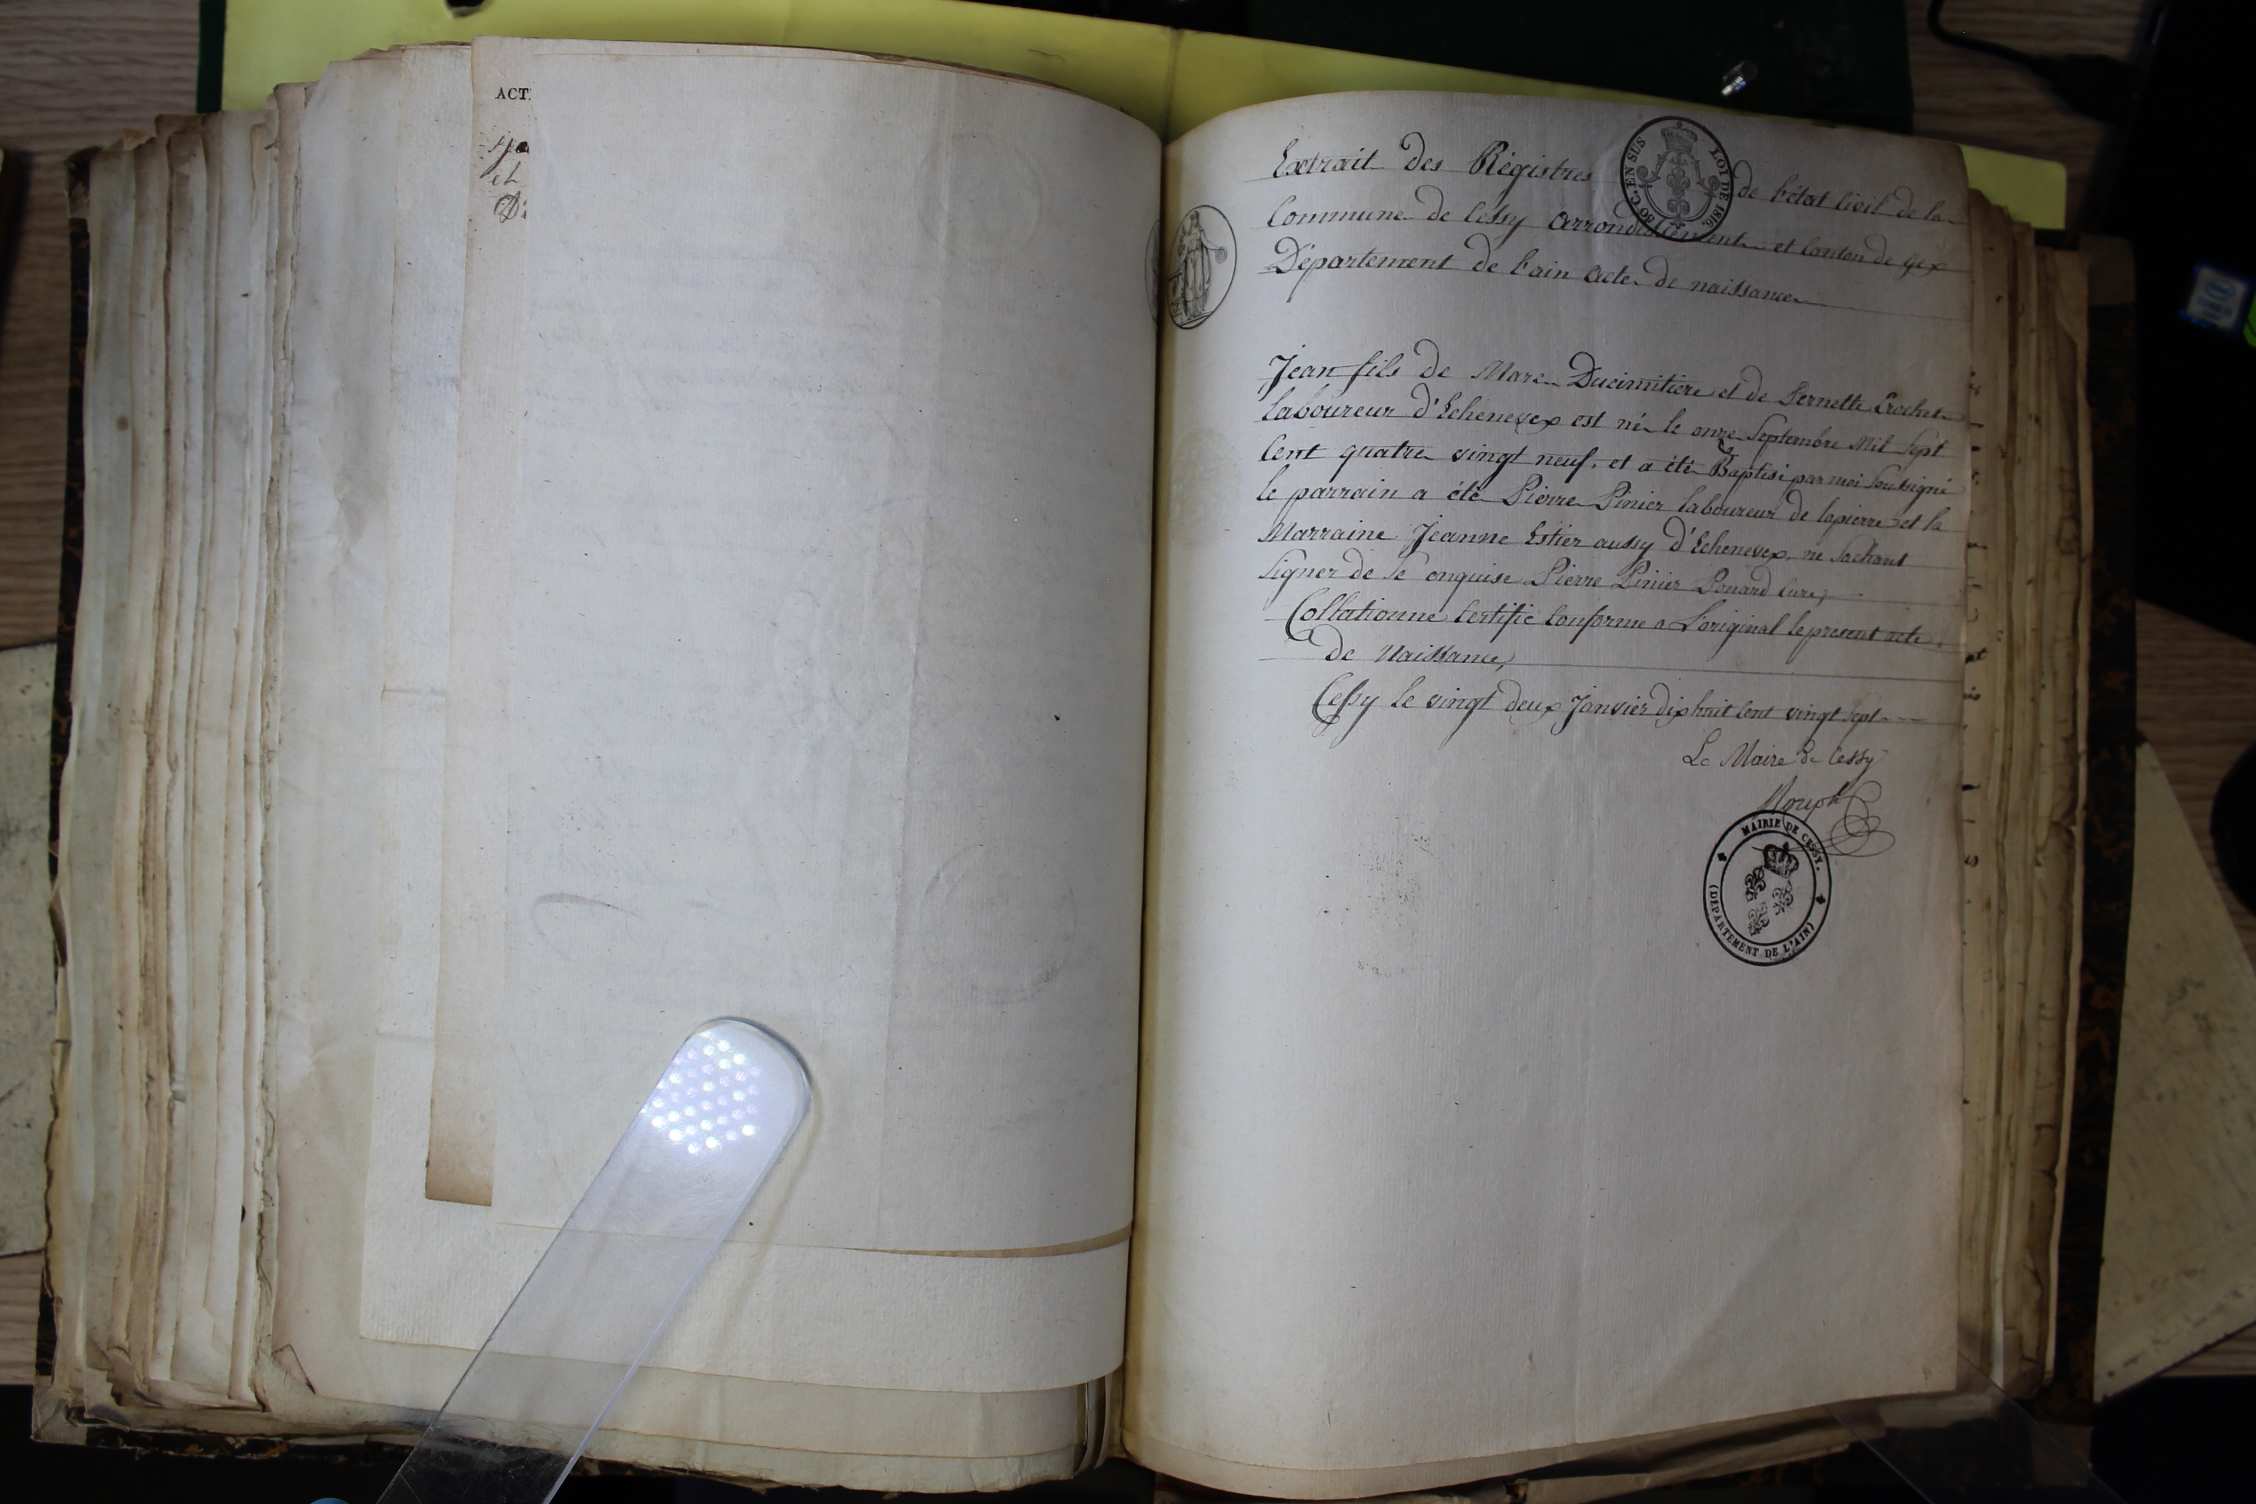 ACT
et
Extrait des Régistres de l'état Civil de la
Commune de Cessy Arrondissement et Canton de Gex
Département de l'ain acte de naissance
50 C. EN SUS
LOI DE 1816
Jean fils de Marc Ducimitiere et de Pernette Crochet
laboureur d'Echenevex est né le onze Septembre Mil Sept
Cent quatre vingt neuf, et a été Baptisé par moi Soussigné
le parrain a été Pierre Pinier laboureur de lapierre et la
Marraine Jeanne Estier aussy d'Echenevex, ne Sachant
Signer de Se enquise Pierre Pinier Ponard Curé,
Collationné Certifié Conforme a L'original le present acte
de Naissance,
Cessy le vingt deux Janvier dix huit Cent vingt Sept
Le Maire de Cessy
MAIRIE DE CESSY.
(DEPARTEMENT DE L'AIN)